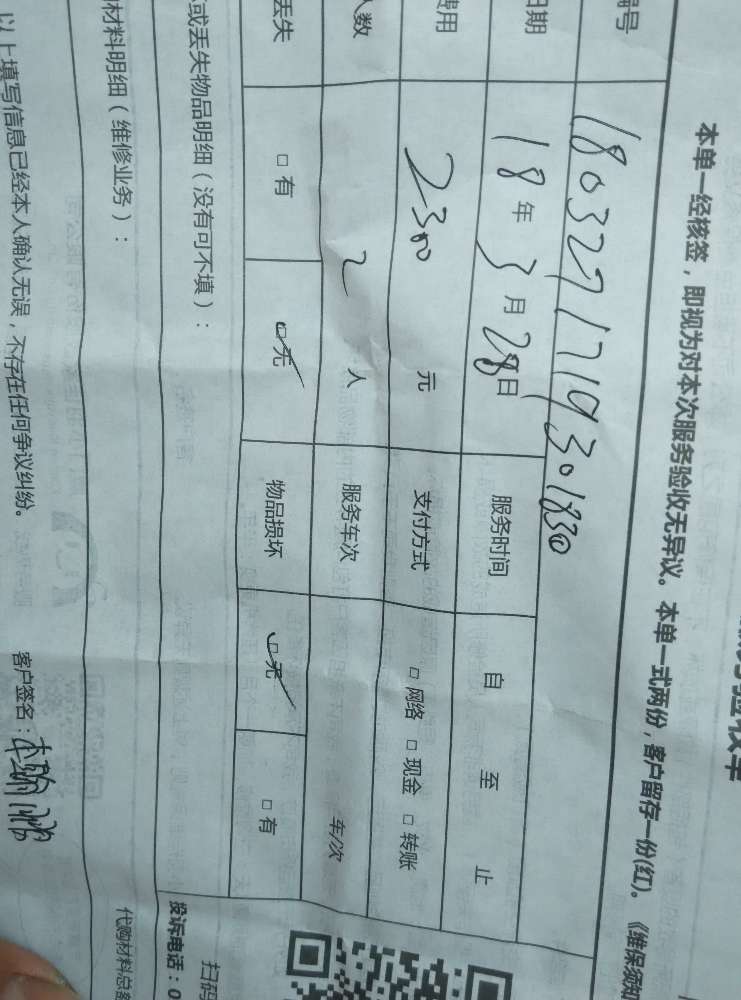 本单一经核签，即视为对本次服务验收无异议。本单一式两份，客户留存一份(红)。《维保须知
编号 1803271719301830
日期 18年3月28日 服务时间 自 至 止
费用 2300 元 支付方式 □ 网络 □ 现金 □ 转账
人数 2 人 服务车次 车/次
丢失 □ 有 □ 无 物品损坏 □ 无 □ 有
或丢失物品明细（没有可不填）：
材料明细（维修业务）： 代购材料总
以上填写信息已经本人确认无误，不存在任何争议纠纷。 客户签名：
扫码
投诉电话：0